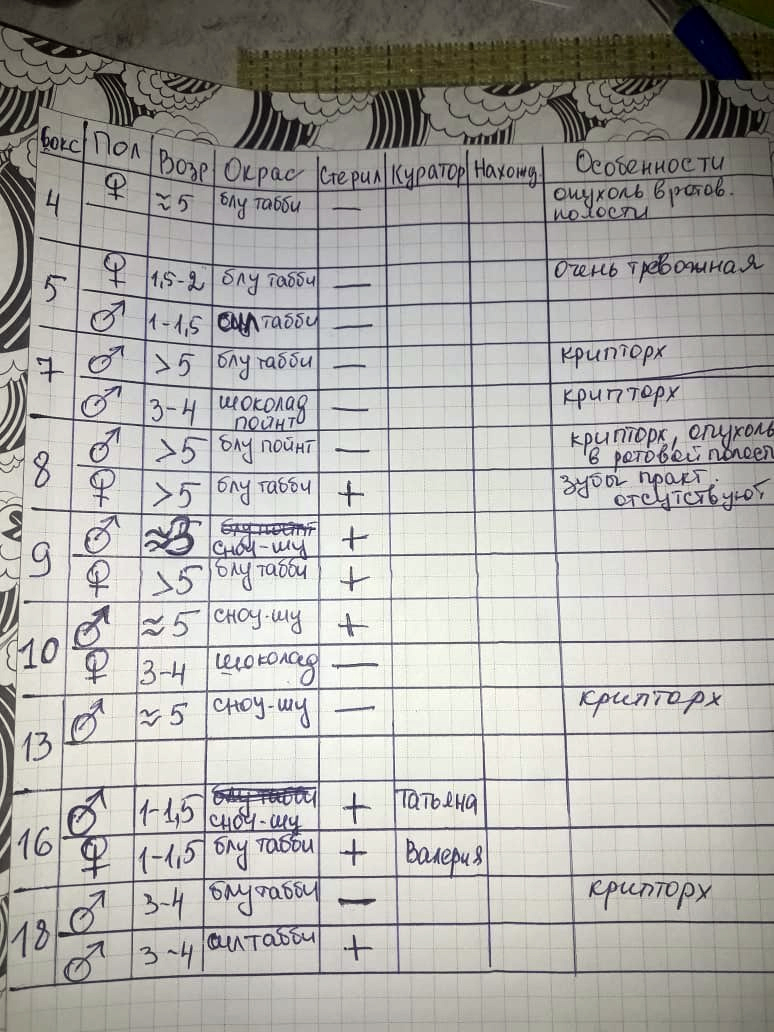 Бокс Пол Возр Окрас Стерил Куратор Нахожд. Особенности
4 ♀ ≈5 блу табби — опухоль в ротов. полости
5 ♀ 1,5-2 блу табби — очень тревожная
♂ 1-1,5 сил табби —
7 ♂ >5 блу табби — крипторх
♂ 3-4 шоколад пойнт — крипторх
8 ♂ >5 блу пойнт — крипторх, опухоль в ротовой полост
♀ >5 блу табби + зубы практ. отсутствуют
9 ♂ ≈3 блу пойнт сноу-шу +
♀ >5 блу табби +
10 ♂ ≈5 сноу-шу +
♀ 3-4 шоколад —
13 ♂ ≈5 сноу-шу — крипторх
16 ♂ 1-1,5 блу табби сноу-шу + Татьяна
♀ 1-1,5 блу табби + Валерия
18 ♂ 3-4 блу табби — крипторх
♂ 3-4 сил табби +